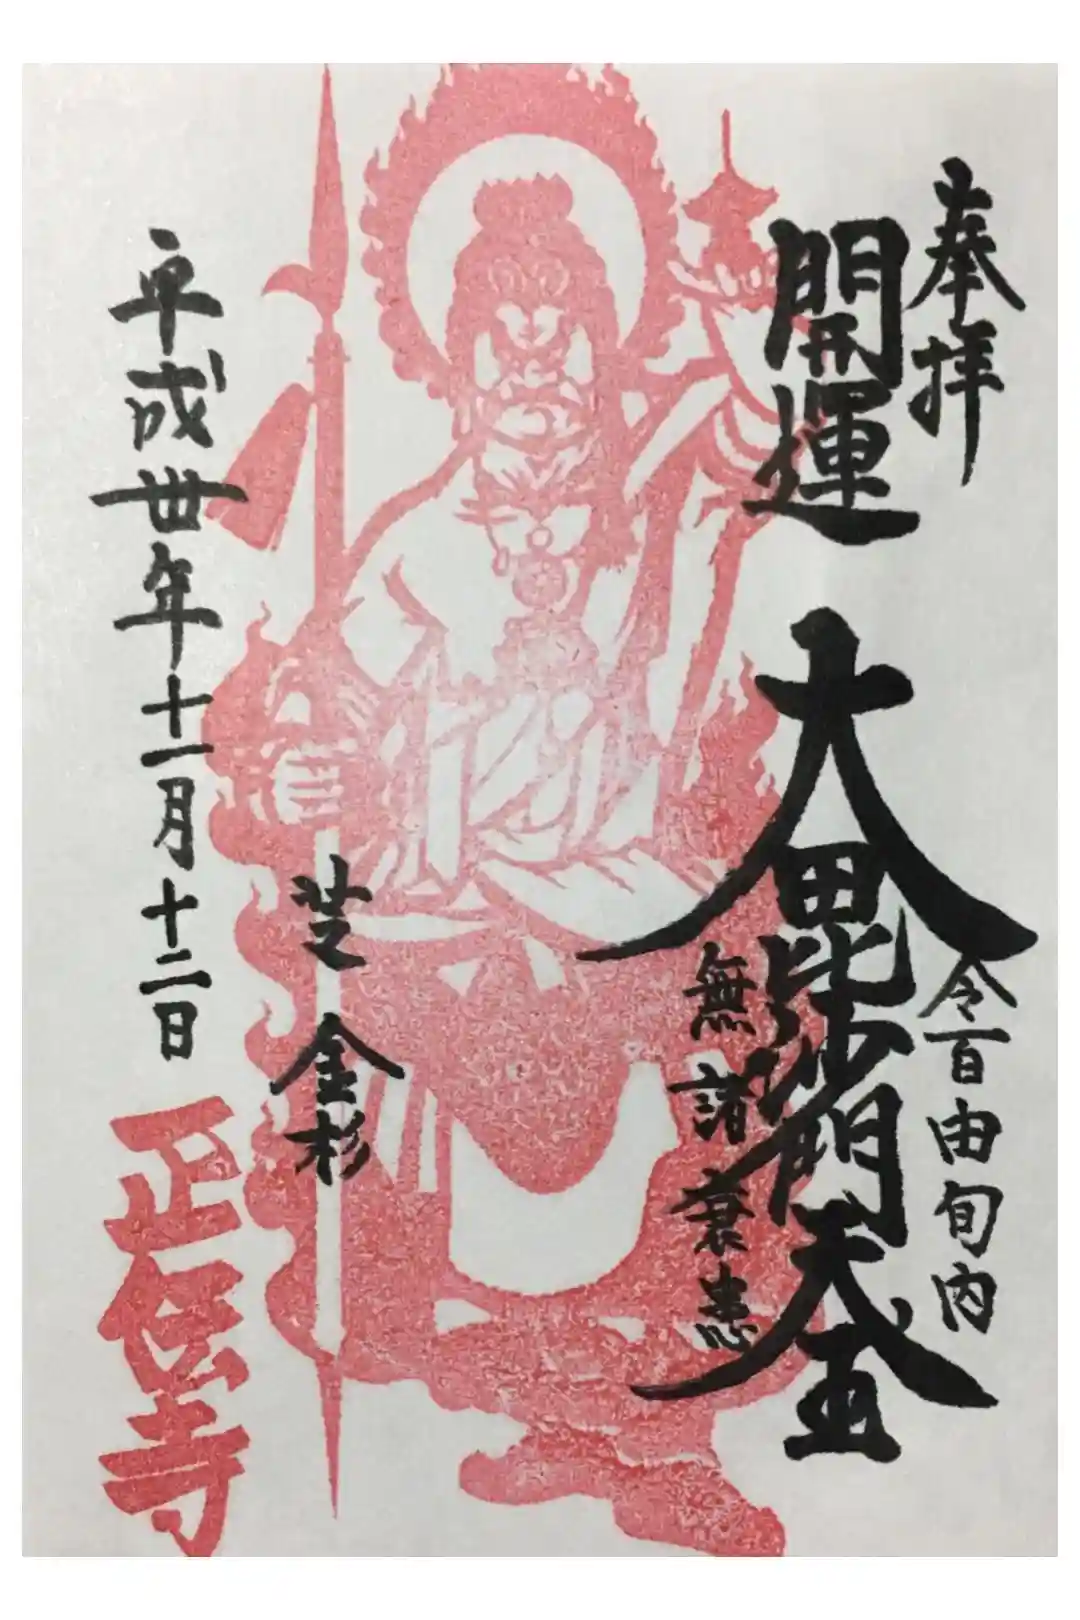 奉拝
開運
大毘沙門天王
令百由旬内
無諸衰患
芝
金杉
平成丗年十一月十二日
正伝寺